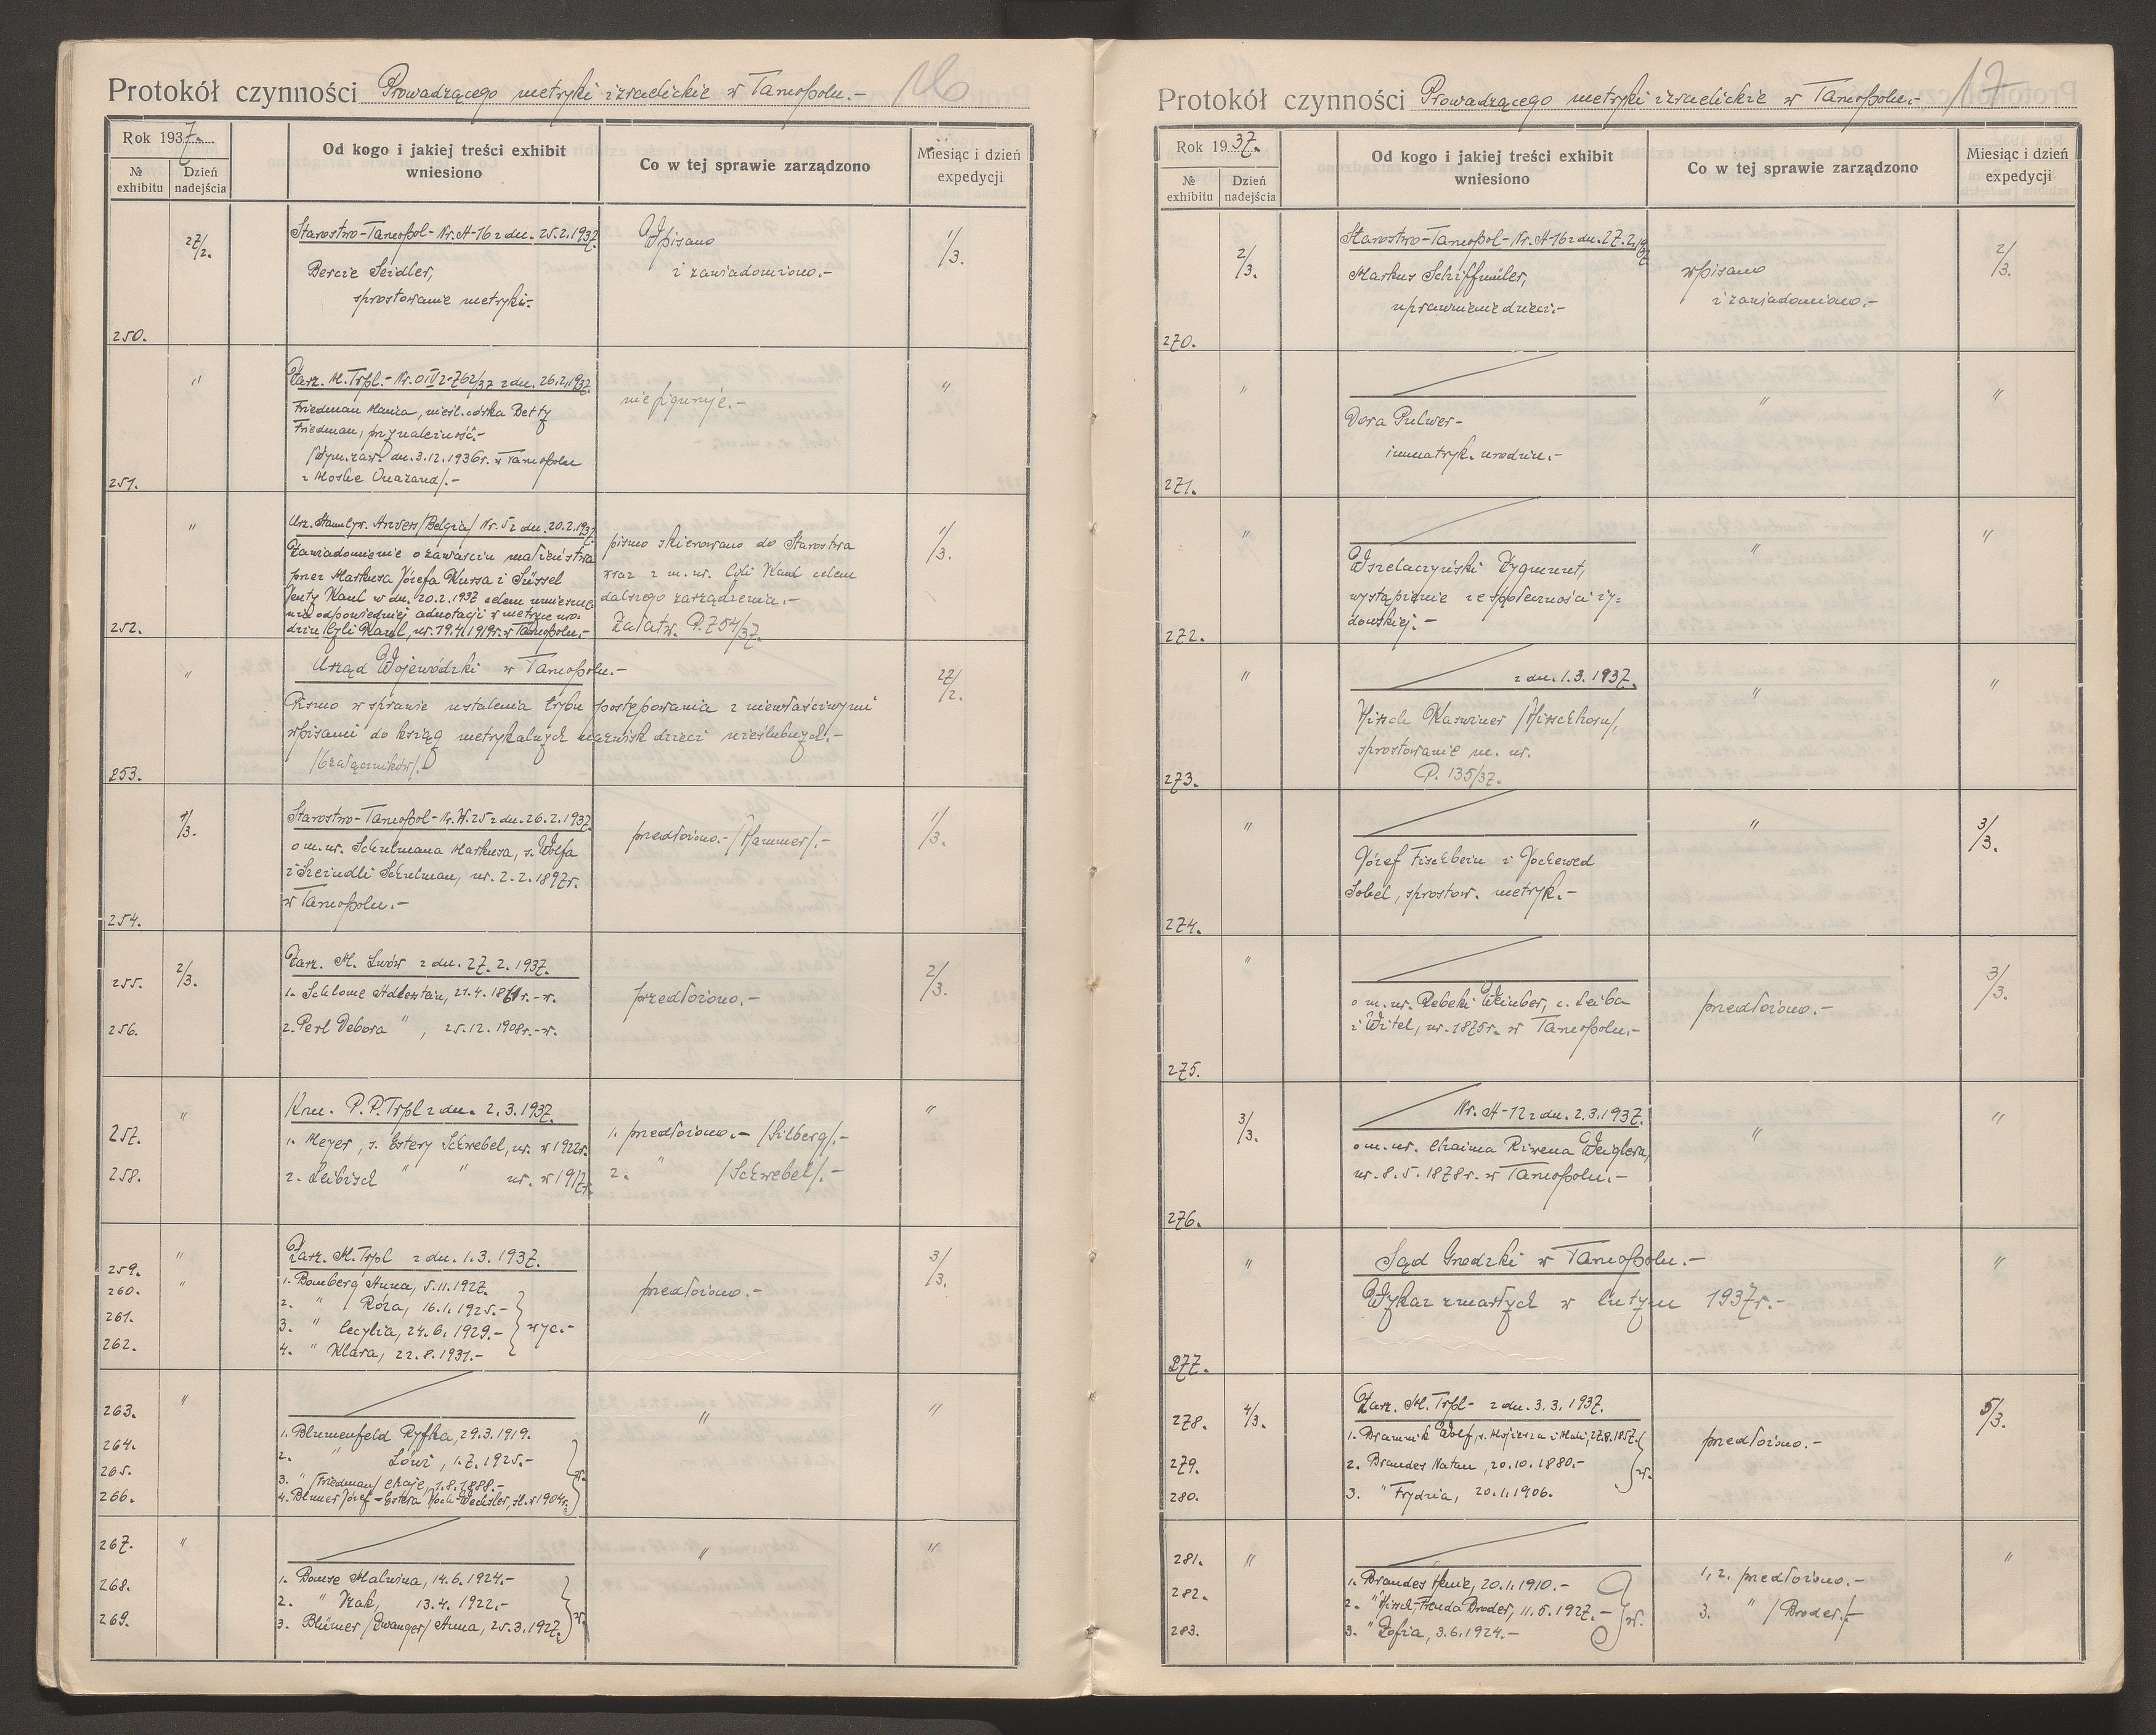 Protokół czynności Prowadzącego metryki izraelickie w Tarnopolu.- 16
Rok 1937.
№ exhibitu
Dzień nadejścia
Od kogo i jakiej treści exhibit wniesiono
Co w tej sprawie zarządzono
Miesiąc i dzień expedycji
27/2.
Starostwo-Tarnopol-Nr.A-16 z dn. 25.2.1937.
Bercie Seidler,
sprostowanie metryki.-
Wpisano
i zawiadomiono.-
1/3.
250.
"
Zarz. M. Trpl.- Nr. O IV 2-762/37 z dn. 26.2.1937.
Friedman Mania, nieśl. córka Betty
Friedman, przynależność.-
dn. 3.12.1936r. w Tarnopolu
z Moshe
nie figuruje.-
"
251.
"
Urz. Stanu cyw. Anvers/Belgia/ Nr. 5 z dn. 20.2.1937.
Zawiadomienie o zawarciu małżeństwa
przez Markusa Józefa Kursa i Süssel
Jenty Kaul w dn. 20.2.1937 celem umieszcze
nia odpowiedniej adnotacji w metryce uro-
dzin Cyli Kaul, ur. 19.4.1919r. w Tarnopolu.-
pismo skierowano do Starostwa
wraz z m. ur. Cyli Kaul celem
dalszego zarządzenia.-
Załatw. P. 754/37.
1/3.
252.
"
Urząd Wojewódzki w Tarnopolu.-
Pismo w sprawie ustalenia trybu postępowania z niewłaściwymi
wpisami do ksiąg metrykalnych nazwisk dzieci nieślubnych.-
/6 załączników/.
27/2.
253.
1/3.
Starostwo-Tarnopol-Nr. W. 25 z dn. 26.2.1937.
o m. ur. Schulmana Markusa, s. Wolfa
i Szeindli Schulman, ur. 2.2.1897r.
w Tarnopolu.-
przedłożono.-/Hammer/.-
1/3.
254.
255.
2/3.
Zarz. M. Lwów z dn. 27.2.1937.
1. Schlome Adlerstein, 21.4.1861r.-w.
przedłożono.-
2/3.
256.
2. Perl Debora ", 25.12.1908r.-w.
257.
"
Kom. P.P. Trpl z dn. 2.3.1937.
1. Meyer, s. Estery Schwebel, ur. w 1922r.
1. przedłożono.- /Silberg/.-
"
258.
2. Leibisch " " ur. w 1917r.
2. " /Schwebel/.-
259.
"
Zarz. M. Trpl z dn. 1.3.1937.
3/3.
260.
"
1. Bomberg Anna, 5.11.1927.
przedłożono.-
2. " Róża, 16.1.1925.-
261.
3. " Cecylia, 24.6.1929.- wyc.-
262.
4. " Klara, 22.8.1931.-
263.
"
"
"
1. Blumenfeld Ryfka, 29.3.1919.
264.
2. " Löwi, 1.7.1925.-
265.
3. " /Friedman/ Chaje, 1.8.1888.- w.
266.
4. Blumer Józef-Estera Koch-Wechsler, śl. w 1904r.
267.
"
"
"
268.
1. Bomse Malwina, 14.6.1924.-
2. " Izak, 13.4.1922.- w.
269.
3. Blümer/Zwanger/ Anna, 25.3.1927.
Protokół czynności Prowadzącego metryki izraelickie w Tarnopolu.- 17
Rok 1937.
№ exhibitu
Dzień nadejścia
Od kogo i jakiej treści exhibit wniesiono
Co w tej sprawie zarządzono
Miesiąc i dzień expedycji
2/3.
Starostwo-Tarnopol-Nr.A-16 z dn. 27.2.1937
Markus Schiffmüler,
uprawnienie dzieci.-
wpisano
i zawiadomiono.-
2/3.
270.
"
Dora Pulwer-
immatryk. urodzin.-
"
"
271.
"
Wszelaczyński Zygmunt,
wystąpienie ze społeczności ży-
dowskiej.-
"
"
272.
"
z dn. 1.3.1937.
Hirsch Kawiner /Hirschhorn/,
sprostowanie m. ur.
P. 135/37.
"
"
273.
"
Józef Fischbein i Jochewed
Sobel, sprostow. metryk.-
"
3/3.
274.
"
o m. ur. Rebeki Weinber, c. Leiba
i Witel, ur. 1875r. w Tarnopolu.-
przedłożono.-
3/3.
275.
3/3.
Nr. A-12 z dn. 2.3.1937.
o m. ur. Chaima Riwena Weiglera,
ur. 8.5.1878r. w Tarnopolu.-
"
"
276.
"
Sąd Grodzki w Tarnopolu.-
Wykaz zmarłych w lutym 1937r.-
"
277.
278.
4/3.
Zarz. M. Trpl- z dn. 3.3.1937.
1. Brammik Wolf, s. Mojżesza i Mali, 27.8.1857.
przedłożono.-
5/3.
279.
2. Brandes Natan, 20.10.1880.- w.
280.
3. " Frydzia, 20.1.1906.
281.
"
"
1. Brandes Henie, 20.1.1910.-
1, 2. przedłożono.-
282.
2. "Hirsch-Frenda Broder, 11.5.1927.- w.
3. " /Broder/.-
283.
3. " Zofia, 3.6.1924.-